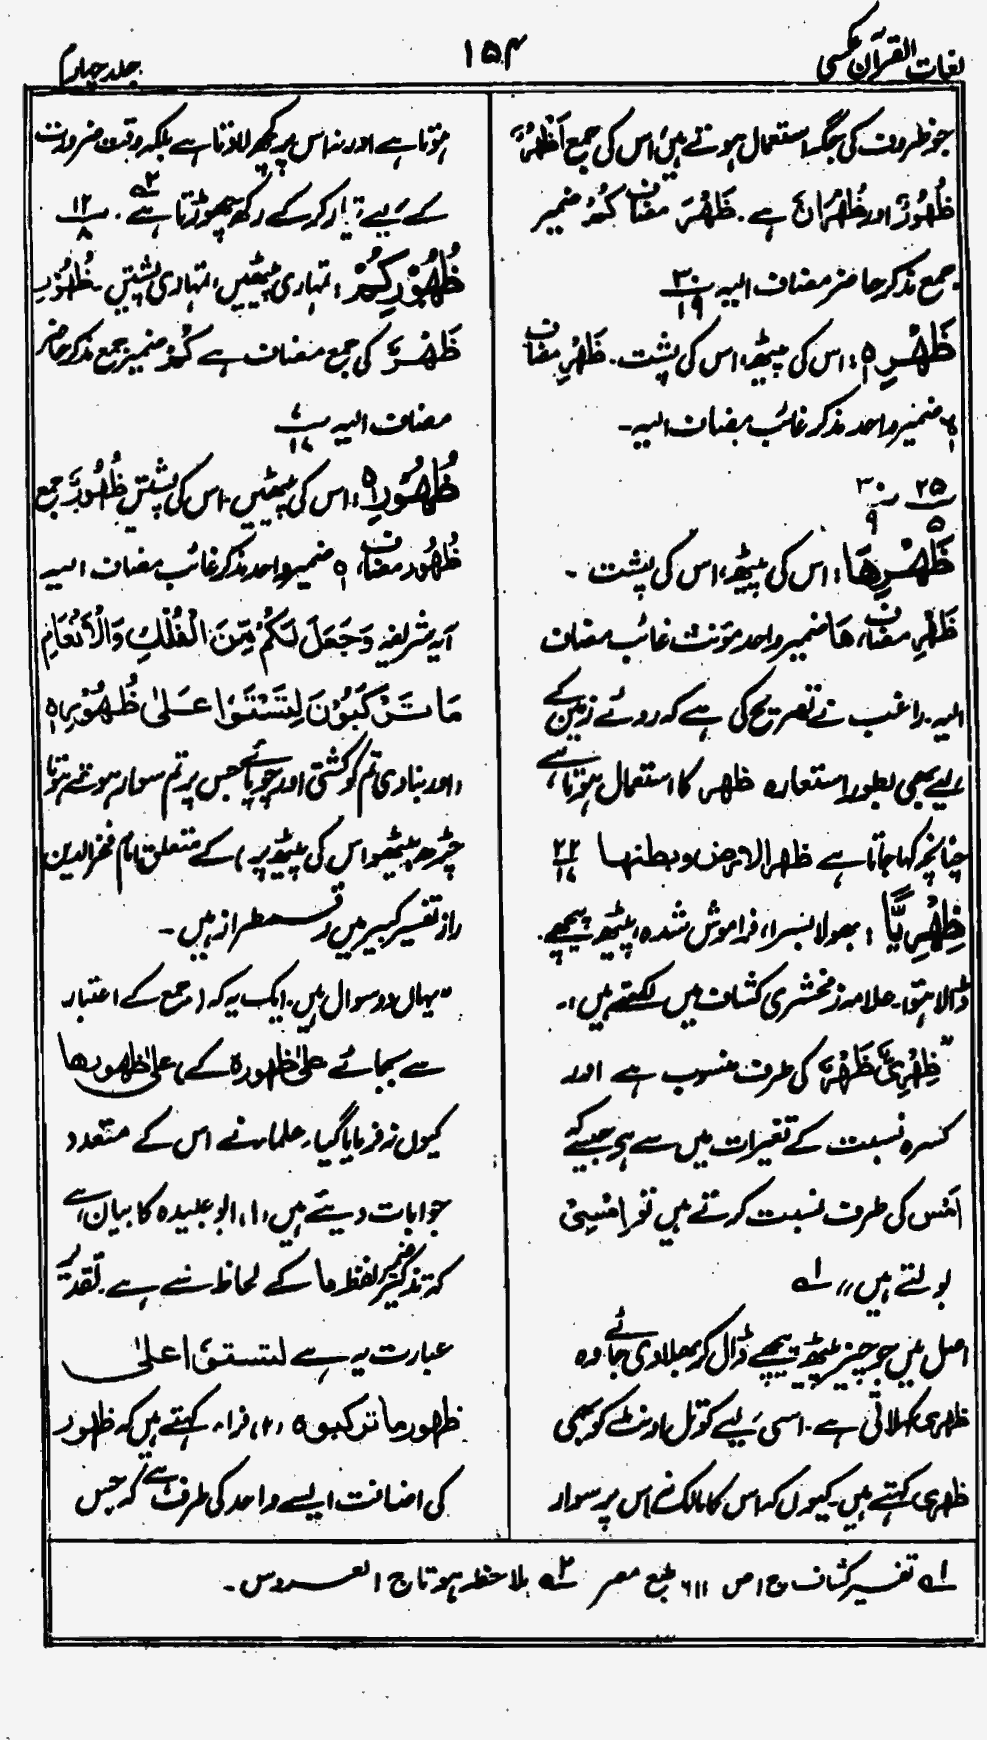 لغات القرآن عکسی
۱۵۴
جلد چہارم
جو ظروف کی جگہ استعمال ہوتے ہیں، اس کی جمع اَظْہُرٌ،
ظُہُوْرٌ اور ظُہْرَانٌ ہے۔ ظَہْرَ مضاف کُمْ ضمیر
جمع مذکر حاضر مضاف الیہ ۳۰/۱۹
ظَہْرِہٖ: اس کی پیٹھ، اس کی پشت۔ ظَہْرِ مضاف
ہٖ ضمیر واحد مذکر غائب مضاف الیہ۔
۲۵/۵ ۳۰/۹
ظَہْرِھَا: اس کی پیٹھ، اس کی پشت۔
ظَہْرِ مضاف، ھَا ضمیر واحد مؤنث غائب مضاف
الیہ۔ راغب نے تصریح کی ہے کہ روئے زمین کے
لیے بھی بطور استعارہ ظھر کا استعمال ہوتا ہے،
چنانچہ کہا جاتا ہے ظھر الارض و بطنھا ۲۲/۱۷
ظِہْرِیًّا: بھولا بسرا، فراموش شدہ، پیٹھ پیچھے
ڈالا ہوا۔ علامہ زمخشری کشاف میں لکھتے ہیں:۔
”ظِہْرِیٌّ ظَہْرٌ کی طرف منسوب ہے اور
کسرہ نسبت کے تغیرات میں سے ہے جیسے کہ
اَمْس کی طرف نسبت کرتے ہیں تو اِمْسِیٌّ
بولتے ہیں،، ؂۱
اصل میں جو چیز پیٹھ پیچھے ڈال کر بھلا دی جائے وہ
ظہری کہلاتی ہے۔ اسی لیے کوتل اونٹ کو بھی
ظہری کہتے ہیں۔ کیوں کہ اس کا مالک نہ اس پر سوار
ہوتا ہے اور نہ اس پر کچھ لادتا ہے بلکہ وقت ضرورت
کے لیے تیار کر کے رکھ چھوڑتا ہے ؂۲۔ ۱۲/۸
ظُہُوْرِکُمْ: تمہاری پیٹھیں، تمہاری پشتیں۔ ظُہُوْرِ
ظَہْرٌ کی جمع مضاف ہے کُمْ ضمیر جمع مذکر حاضر
مضاف الیہ ۷/۱۷
ظُہُوْرِہٖ: اس کی پیٹھیں۔ اس کی پشتیں ظُہُوْرٌ جمع
ظُہُورِ مضاف، ہٖ ضمیر واحد مذکر غائب مضاف الیہ
آیہ شریفہ وَجَعَلَ لَکُمْ مِّنَ الْفُلْکِ وَالْاَنْعَامِ
مَا تَرْکَبُوْنَ لِتَسْتَوٗا عَلٰی ظُہُوْرِہٖ
(اور بنا دی تم کو کشتی اور چوپائے جس پر تم سوار ہوتے ہو تا
چڑھ بیٹھو اس کی پیٹھ پر) کے متعلق امام فخر الدین
رازی تفسیر کبیر میں رقمطراز ہیں۔
”یہاں دو سوال ہیں۔ ایک یہ کہ (مرجع کے اعتبار
سے بجائے علیٰ ظھورہ کے) علیٰ ظھورھا
کیوں نہ فرمایا گیا، علماء نے اس کے متعدد
جوابات دیئے ہیں (۱) ابو عبیدہ کا بیان ہے
کہ تذکیر ضمیر لفظ ما کے لحاظ سے ہے۔ تقدیر
عبارت یہ ہے لتستوٗا علیٰ
ظھور ما ترکبوہ (۲) فراء کہتے ہیں کہ ظھور
کی اضافت ایسے واحد کی طرف ہے کہ جس
؂۱ تفسیر کشاف ج ۱ ص ۶۱۱ طبع مصر ؂۲ ملاحظہ ہو تاج العروس۔